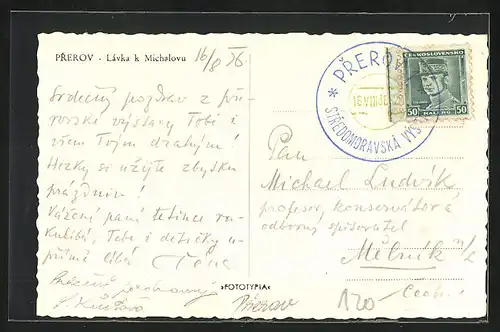 PŘEROV - Lávka k Michalovu 16/8 36
Srdečný pozdrav z pře-
rovské výstavy Tobě i
všem Tvým drahým!
Hezky si užijte zbytku
prázdnin!
Vážené paní tetince ru-
kulíbá, Tebe i dětičky u-
přímně líbá
»FOTOTYPIA«
Přerov
PŘEROV
STŘEDOMORAVSKÁ VÝS
16.VIII.36
ČESKOSLOVENSKO
50 HALÉŘŮ 50
Pan
Michael Ludvík,
profesor, konservátor a
odborný spisovatel
Mělník n/L
Čechy
120